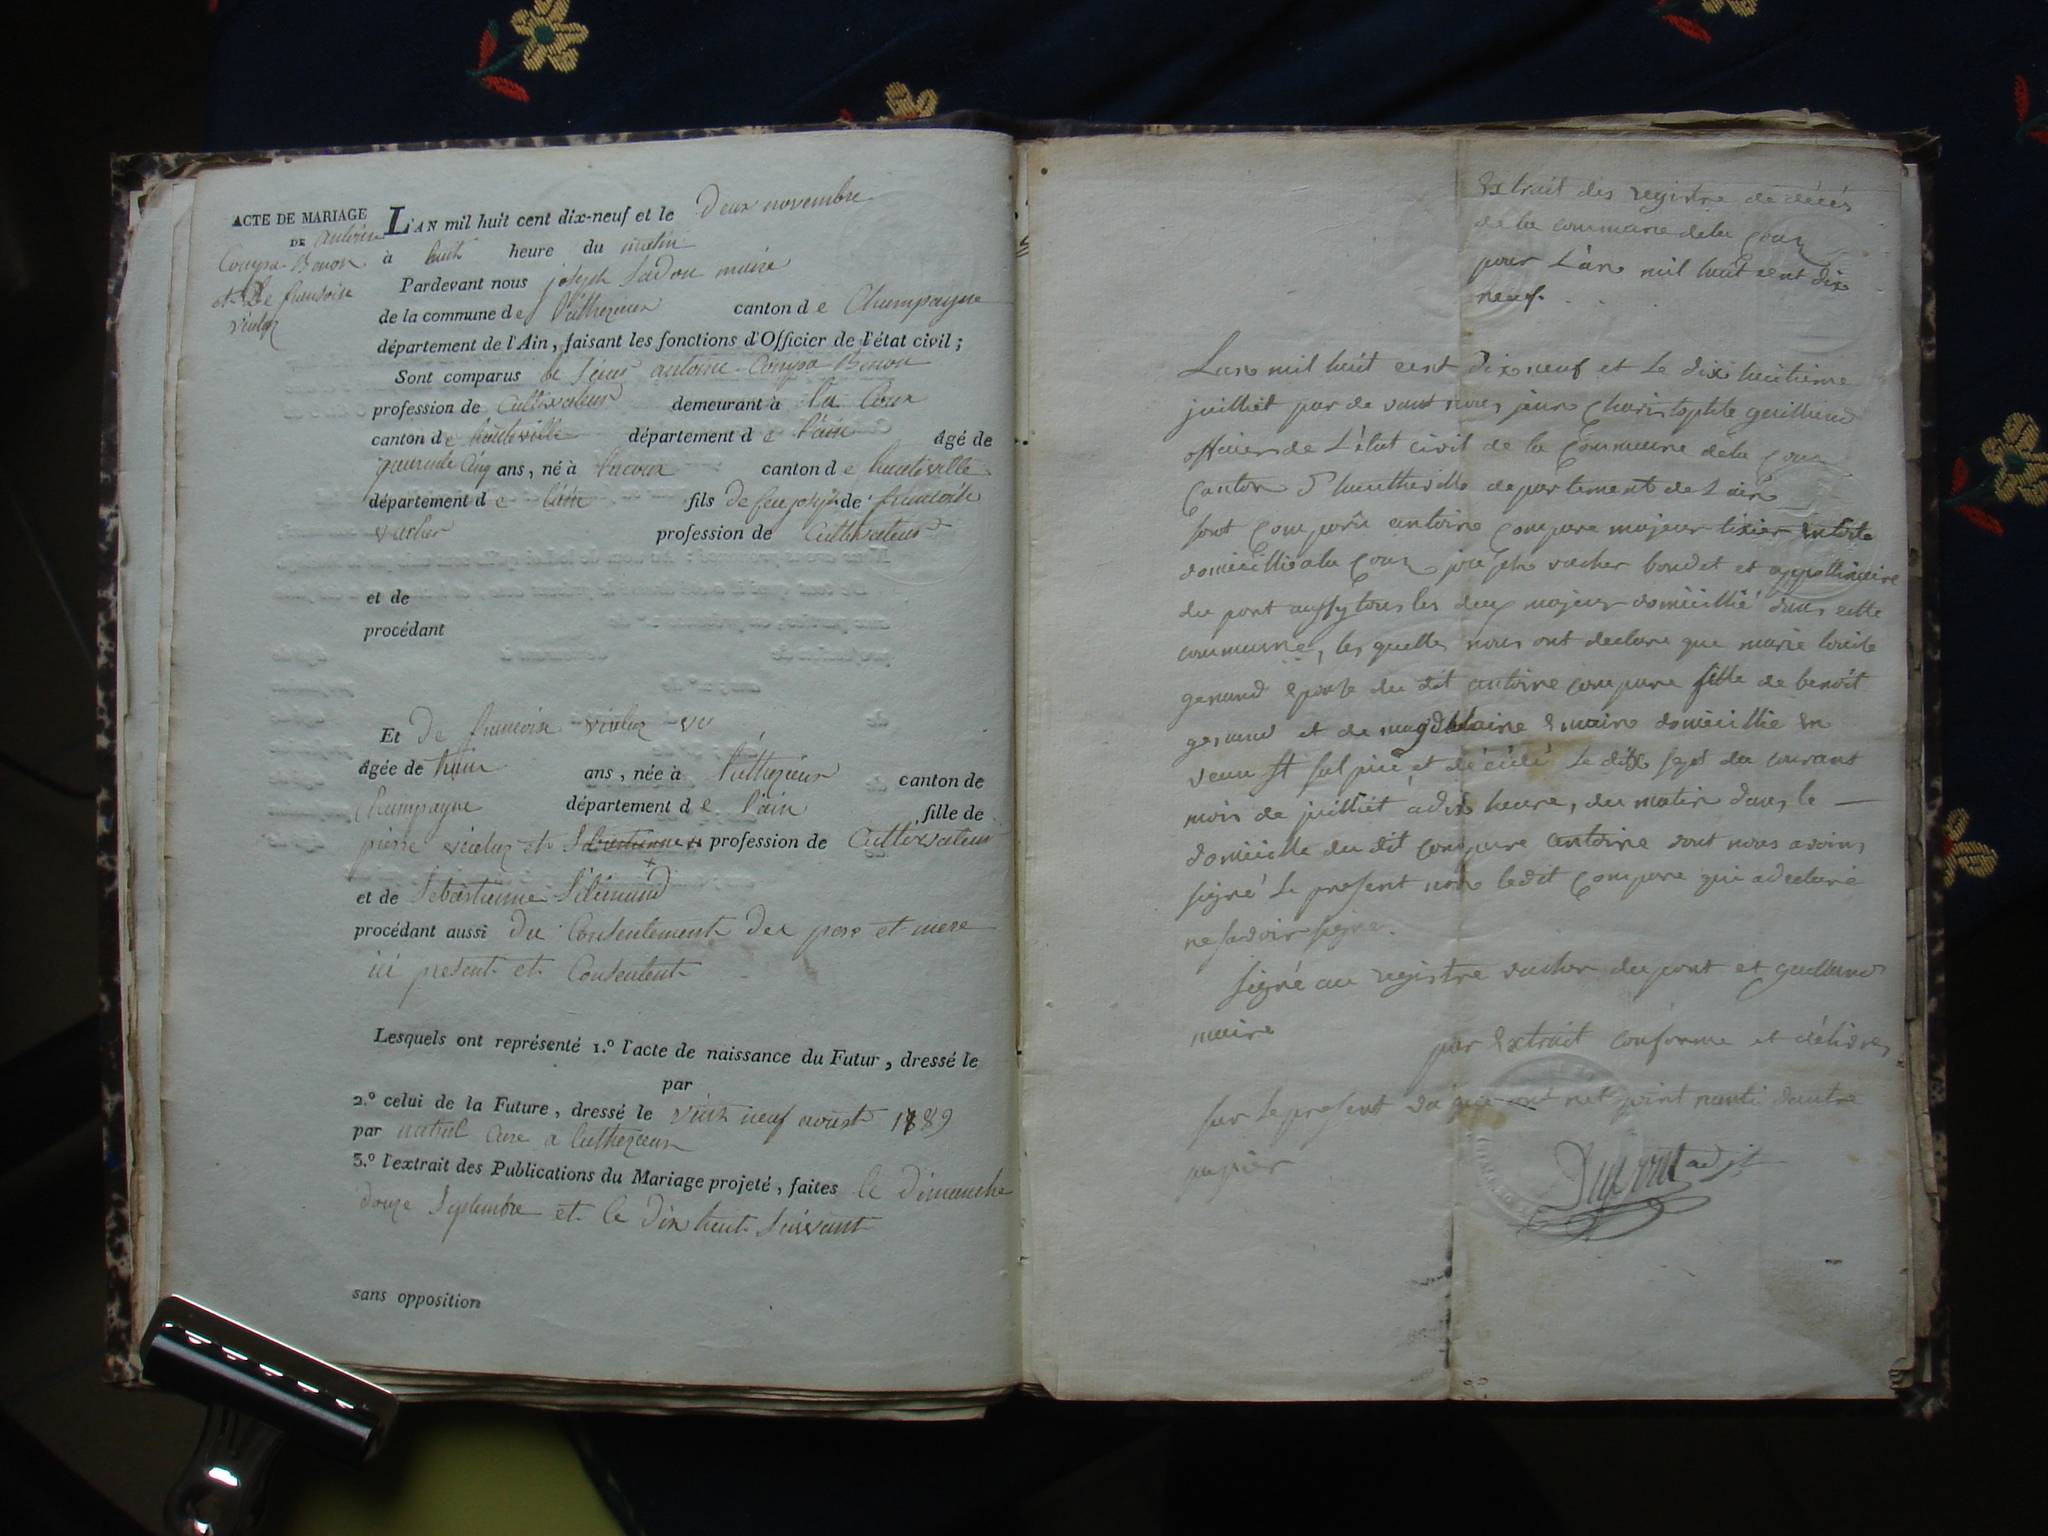 ACTE DE MARIAGE
DE antoine
Compra Benon
et De fransoise
vialaz
L'AN mil huit cent dix-neuf et le Deux novembre
à huit heure du matin
Pardevant nous joseph maire
de la commune de canton de Champagne
département de l'Ain, faisant les fonctions d'Officier de l'état civil;
Sont comparus le sieur antoine Compra Benon
profession de Cultivateur demeurant à la Cour
canton de hauteville département de l'ain âgé de
quarente cinq ans, né à lacour canton de hauteville
département de l'ain fils de feu joseph de francoise
vacher profession de Cultivateur
et de
procédant
Et De francoise vialaz
âgée de ans, née à canton de
Champagne département de l'ain fille de
pierre vialaz et profession de Cultivateur
et de Sebastienne
procédant aussi du Consentement des pere et mere
ici present et Consentent
Lesquels ont représenté 1.º l'acte de naissance du Futur, dressé le
par
2.º celui de la Future, dressé le vint neuf aoust
par Curé a
3.º l'extrait des Publications du Mariage projeté, faites le dimanche
douze Septembre et le Dix huit Suivant
sans opposition
Extrait des registre de décés
de la commune dela Cour
pour L'an mil huit cent dix
neuf.
Lan mil huit cent dix neuf et le dix huitieme
juilliet par de vant nous jean Charistophle guilliand
officier de L'état civil de la Commune dela Cour
Canton d'hautheville departement de Lain
sont Comparu antoine compare majeur tixier en toile
domicillié ala Cour joseph vacher boudet et appollinaire
du pont aussy tous les deux majeur domicillié dans cette
commune, les quelles nous ont declare que marie louise
gesnand epouse du dit antoine compare fille de benoit
gesnand et de magdelaine emain domicillie en
veau St sulpice, et décédé Le dix sept du courant
mois de juilliet a dix heure, du matin dans le —
domicille du dit compare antoine dont nous avoins
signé Le present non ledit Compare qui a declaré
ne savoir signer.
signé au registre vacher du pont et guilland
maire
par extrait conforme et délivrer
sur Le present net point nanti dautre
papier
Dupont adjt